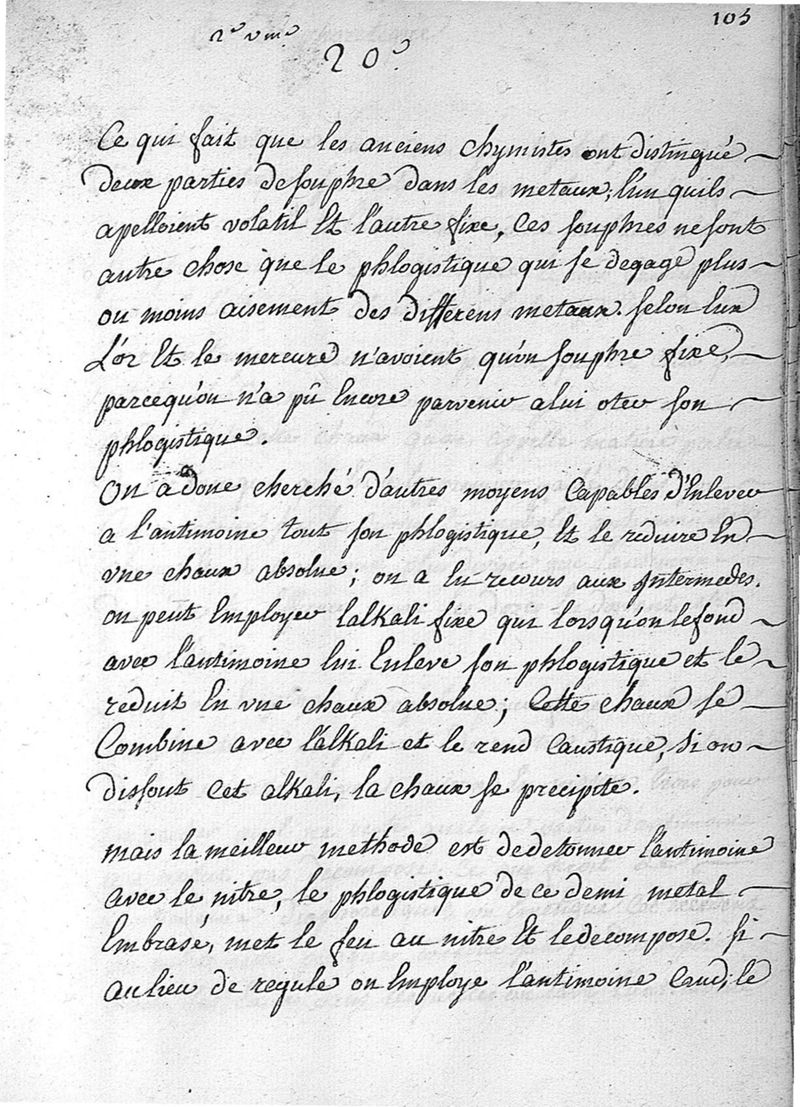 105
2.e vme
20e
Ce qui fait que les anciens chymistes ont distingué
deux parties de souphre dans les metaux; l'un quils
apelloient volatil Et l'autre fixe, Ces souphres ne sont
autre chose que le phlogistique qui se degage plus
ou moins aisement des differens metaux. selon Eux
L'or Et le mercure n'avoient qu'un souphre fixe,
parcequ'on n'a pû Encore parvenir a lui oter son
phlogistique.
On a donc cherché d'autres moyens Capables d'Enlever
a l'antimoine tout son phlogistique, Et le reduire En
vne chaux absolue; on a Eu recours aux Intermedes.
on peut Employer lalkali fixe qui lorsqu'on le fond
avec l'antimoine lui Enleve son phlogistique et le
reduit En vne chaux absolue; Cette chaux se
Combine avec l'alkali et le rend Caustique, Si on
dissout Cet alkali, la chaux se precipite.
mais la meilleur methode est de detonner l'antimoine
avec le nitre, le phlogistique de ce demi metal
Embrasé, met le feu au nitre Et le decompose. si
au lieu de regule on Employe l'antimoine Crud, le